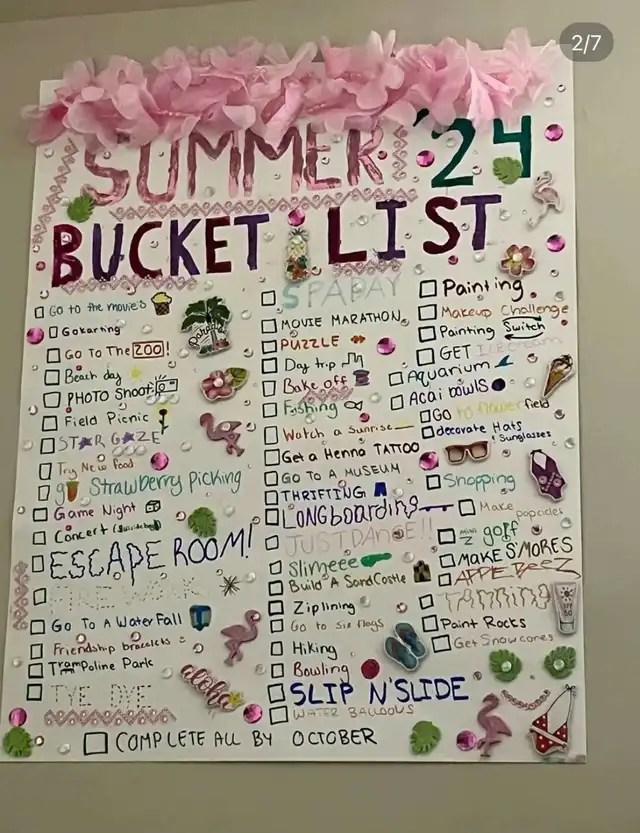 2/7
SUMMER '24
BUCKET LIST
GO to the movie's
Gokarting
Go To The ZOO!
Beach day
PHOTO Shoot
Field Picnic
STAR GAZE
Try New food
go Strawberry Picking
Game Night
Concert
ESCAPE ROOM!
FIREWORK
Go To A WaterFall
Friendship bracelets
Trampoline Park
TYE DYE
aloha
SPA DAY
MOVIE MARATHON
PUZZLE
Day trip
Bake off
Fishing
Watch a Sunrise
Get a Henna TATTOO
GO TO A MUSEUM
THRIFTING
LONGboarding
JUST DANCE!!
Slimeee
Build A SandCastle
Ziplining
Go to six flags
Hiking
Bowling
SLIP N'SLIDE
WATER BALLOONS
Painting
Makeup Challenge
Painting Switch
GET Icecream
Aquarium
Acai bowls
GO to flower field
decorate Hats
& Sunglasses
Shopping
Make popcicles
mini golf
MAKE S'MORES
APPLEBEEZ
TANNING
Paint Rocks
Get Snowcones
SPF 50
COMPLETE ALL BY OCTOBER